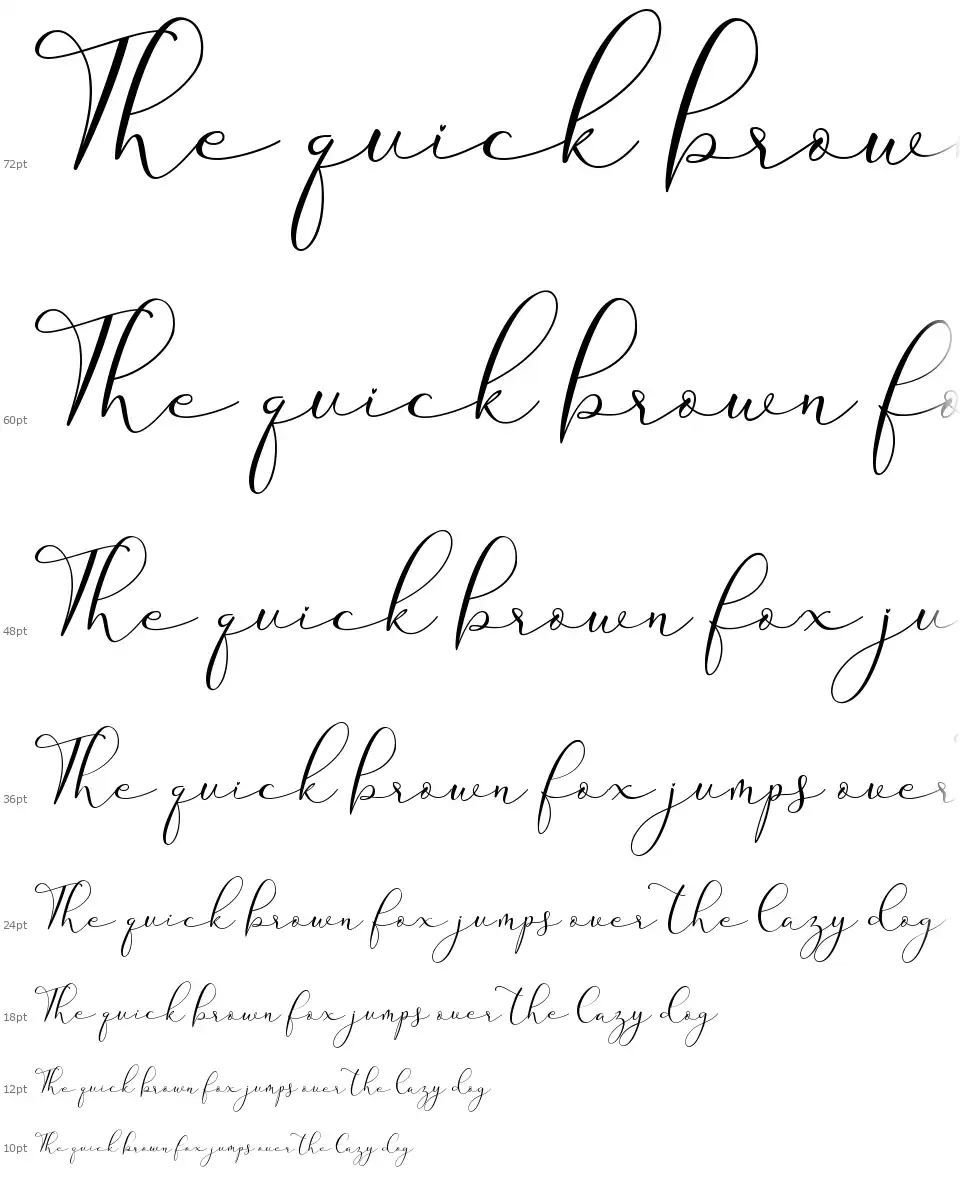 72pt The quick brow
60pt The quick brown fo
48pt The quick brown fox ju
36pt The quick brown fox jumps over
24pt The quick brown fox jumps over the lazy dog
18pt The quick brown fox jumps over the lazy dog
12pt The quick brown fox jumps over the lazy dog
10pt The quick brown fox jumps over the lazy dog